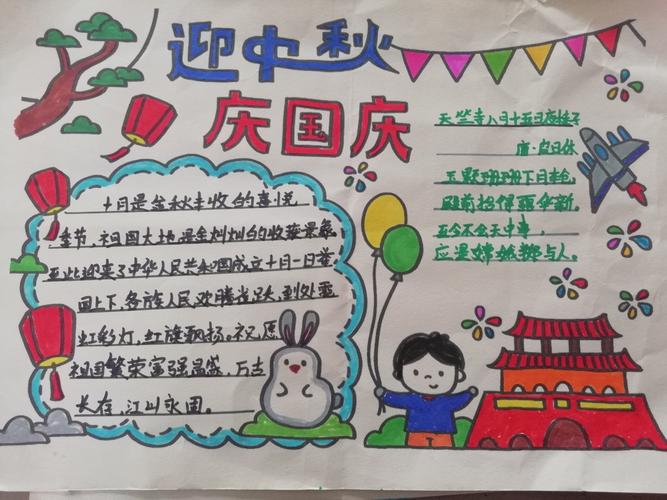 迎中秋
庆国庆
十月是金秋丰收的喜悦
季节,祖国大地是金灿灿的收获景象
至此迎来了中华人民共和国成立十月一日举
国上下,各族人民欢腾雀跃,到处霓
虹彩灯,红旗飘扬。祝愿
祖国繁荣富强昌盛,万古
长存,江山永固。
天竺寺八月十五日夜桂子
唐·白日休
玉颗珊珊下月轮,
殿前拾得露华新。
至今不会天中事,
应是嫦娥掷与人。